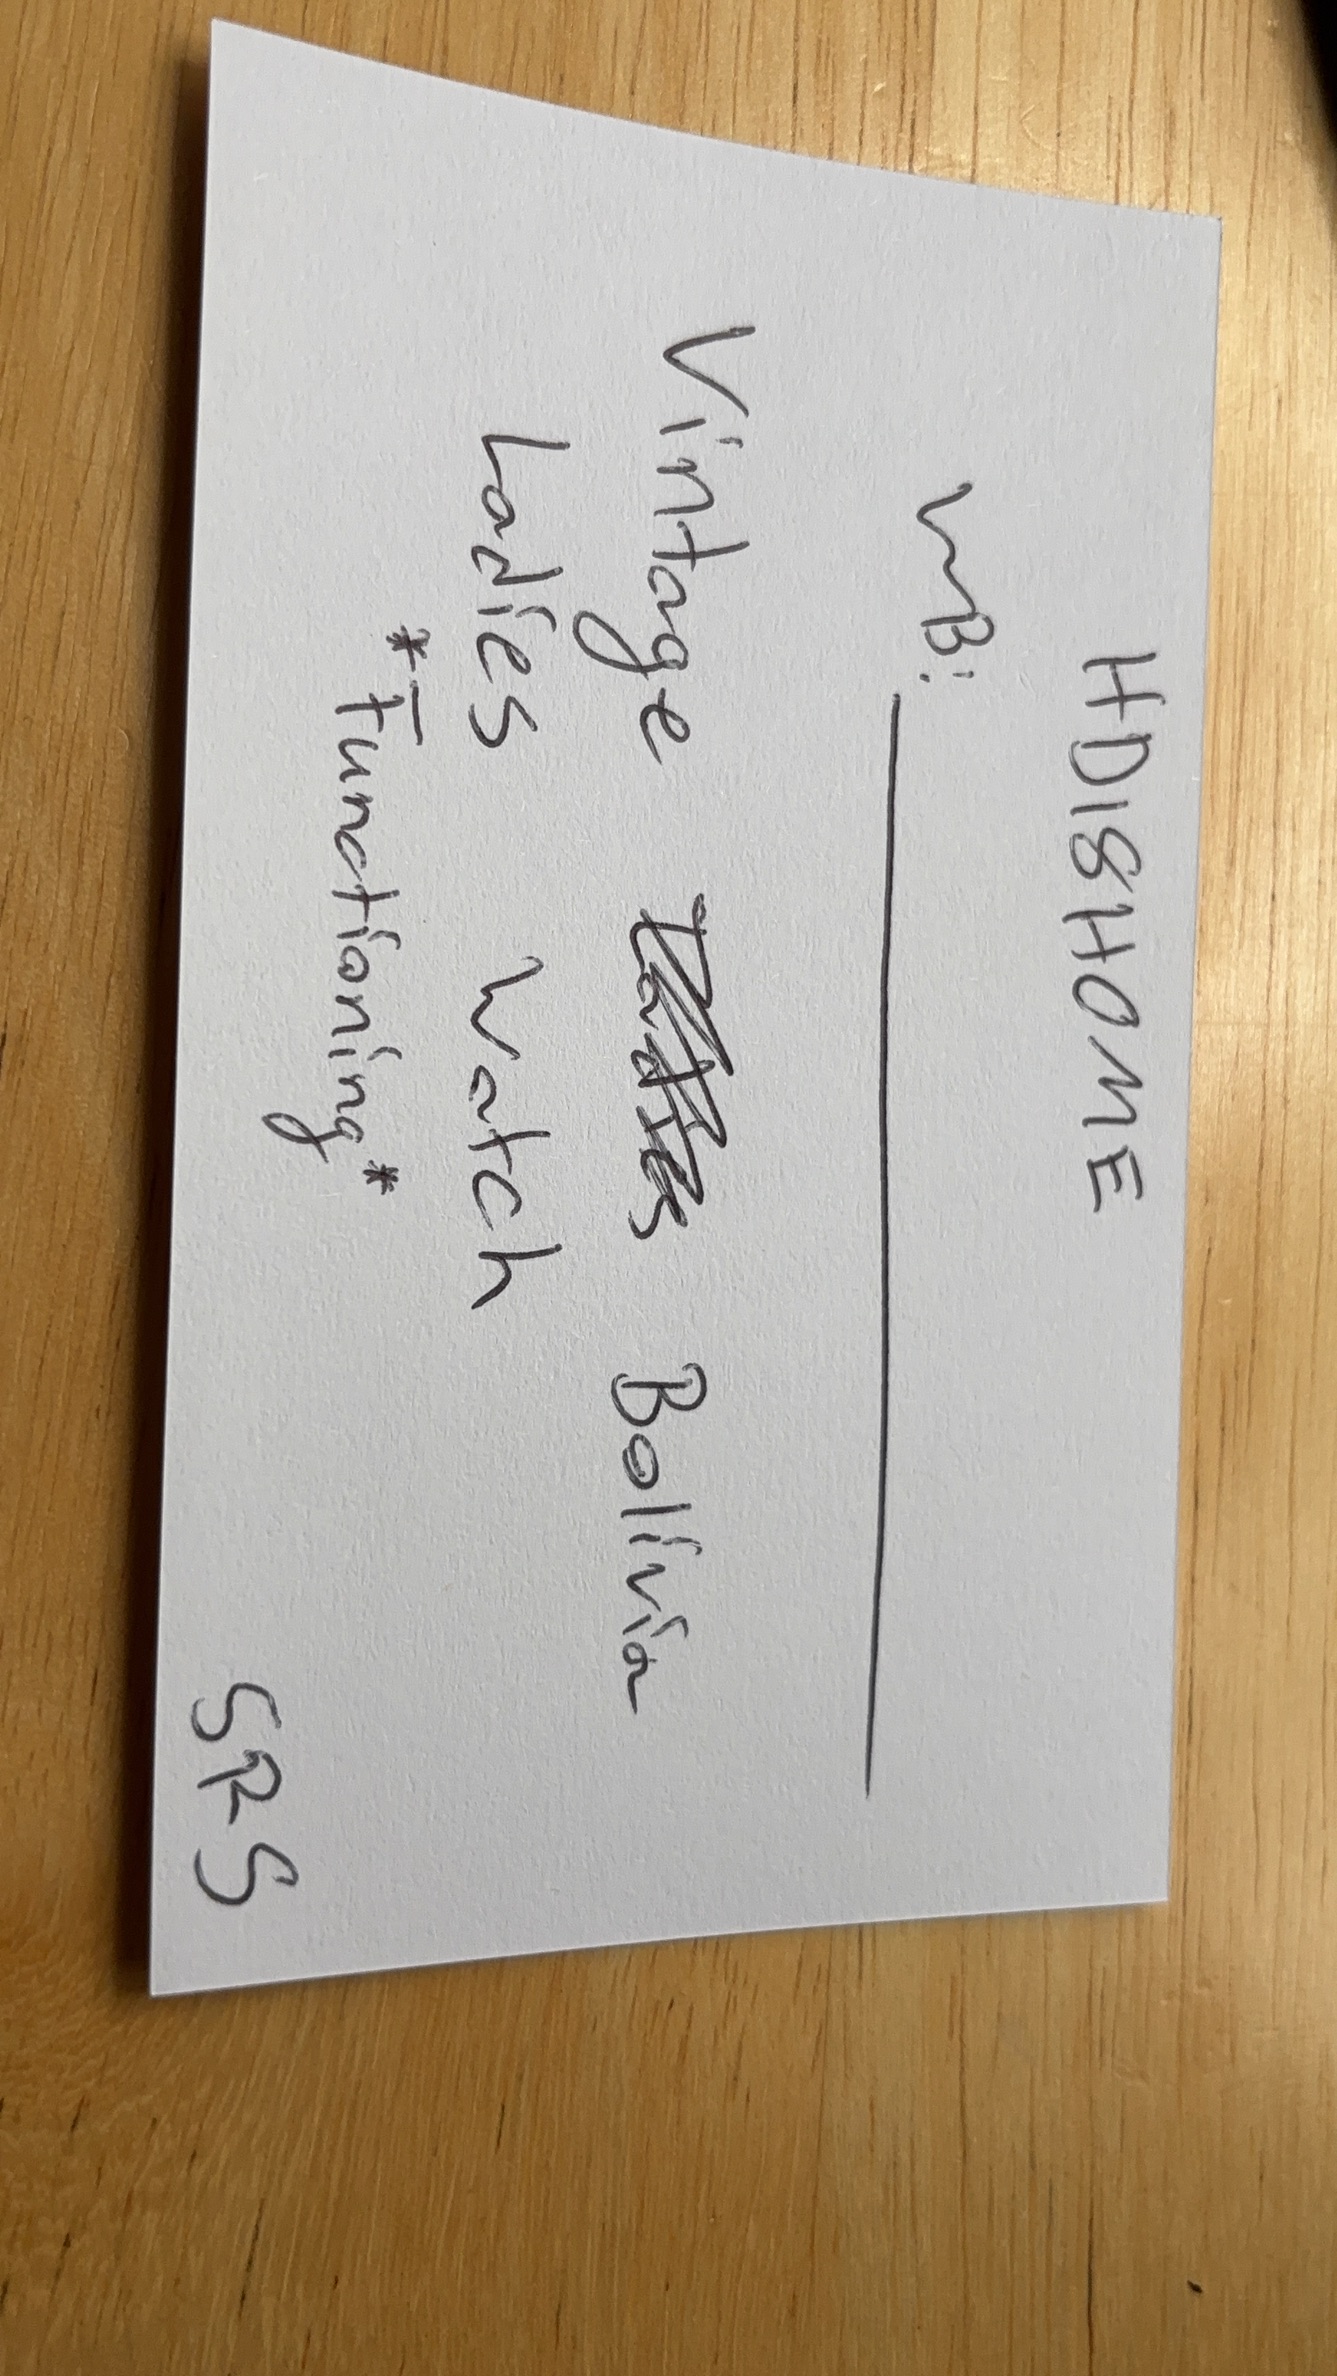 HDISHOME
WB:
Vintage Bolivia
Ladies Watch
*Functioning*
SRS